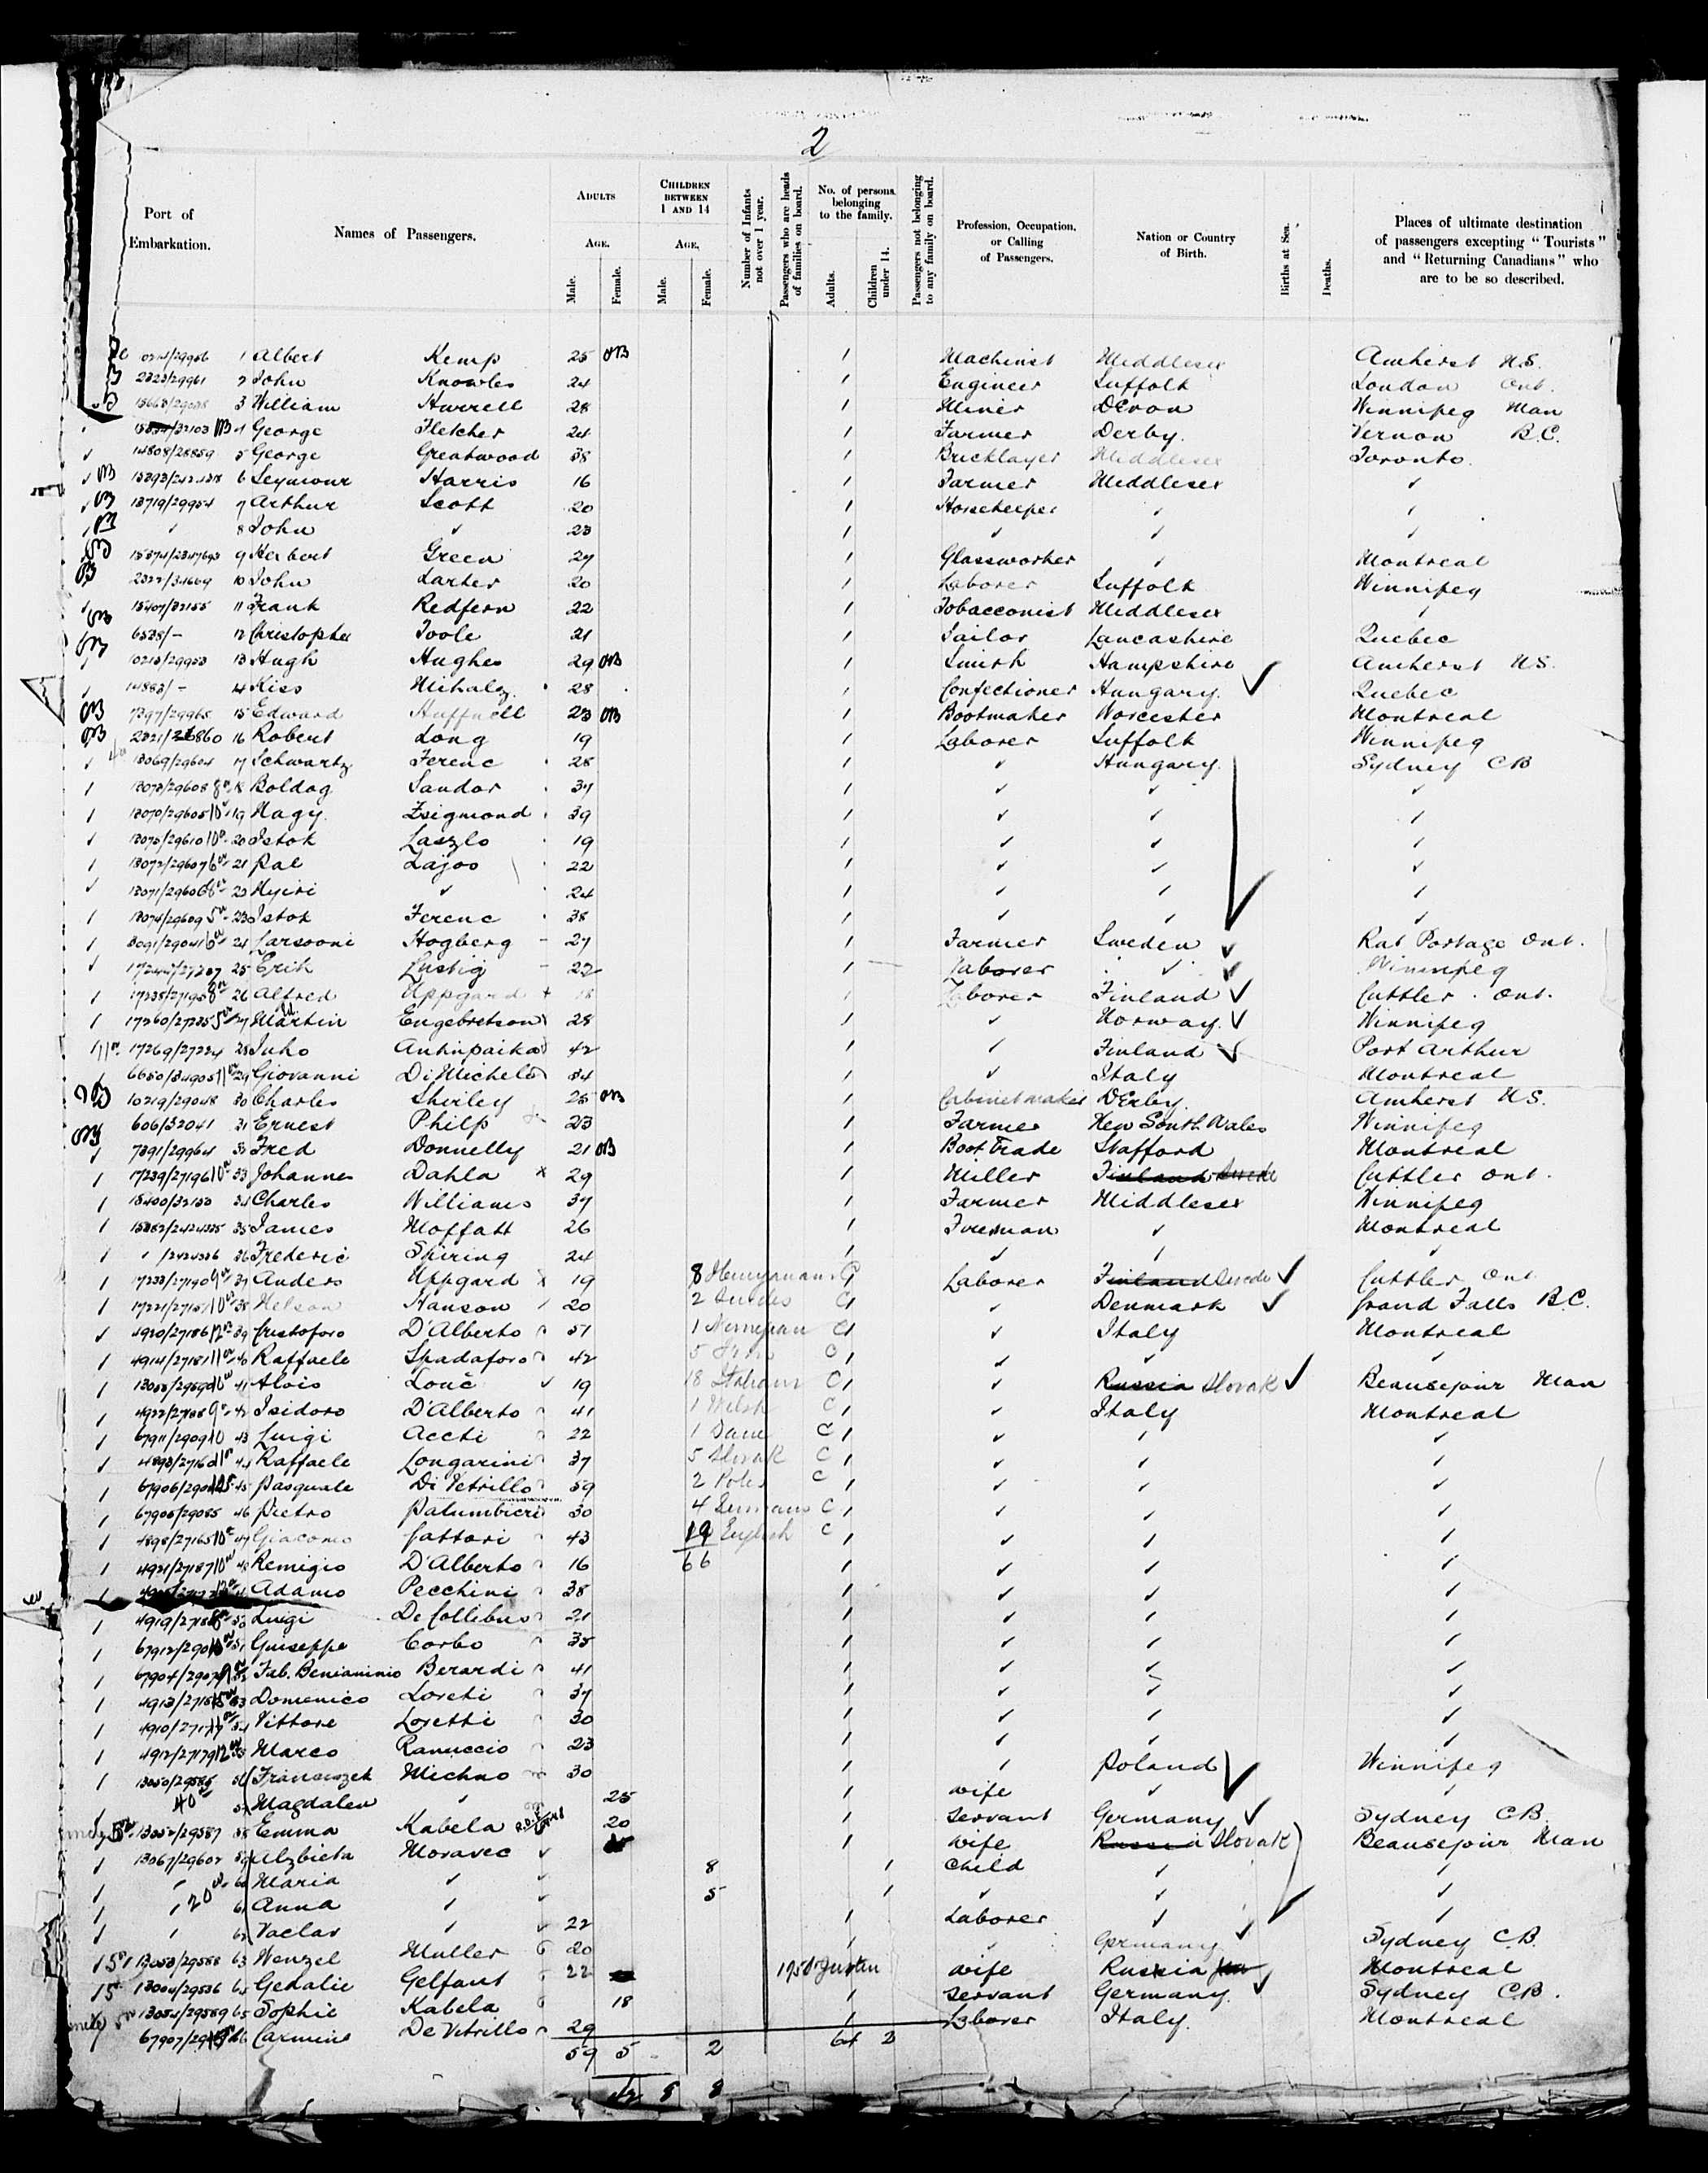 2
Port of Embarkation.
Names of Passengers.
ADULTS
AGE.
Male.
Female.
CHILDREN BETWEEN 1 AND 14
AGE.
Male.
Female.
Number of Infants not over 1 year.
Passengers who are heads of families on board.
No. of persons belonging to the family.
Adults.
Children under 14.
Passengers not belonging to any family on board.
Profession, Occupation, or Calling of Passengers.
Nation or Country of Birth.
Births at Sea.
Deaths.
Places of ultimate destination of passengers excepting "Tourists" and "Returning Canadians" who are to be so described.
1 Albert Kemp 25 1 Machinist Middlesex Amherst N.S.
2323/29961 2 John Knowles 24 1 Engineer Suffolk London Ont.
3 William Hurrell 28 1 Miner Devon Winnipeg Man
4 George Fletcher 24 1 Farmer Derby. Vernon B.C.
14808/28859 5 George Greatwood 38 1 Bricklayer Middlesex Toronto
6 Seymour Harris 16 1 Farmer Middlesex ✓
13719/29954 7 Arthur Scott 20 1 Horsekeeper ✓ ✓
✓ 8 John ✓ 23 1 ✓ ✓ ✓
9 Herbert Green 27 1 Glassworker ✓ Montreal
2322/34664 10 John Larter 20 1 Laborer Suffolk Winnipeg
15407/32155 11 Frank Redfern 22 1 Tobacconist Middlesex ✓
6528/- 12 Christopher Toole 21 1 Sailor Lancashire Quebec
10213/29953 13 Hugh Hughes 29 1 Smith Hampshire Amherst N.S.
14883/- 14 Kiss Mihaly. 28 1 Confectioner Hungary. ✓ Quebec
7397/29965 15 Edward Huffnell 23 1 Bootmaker Worcester Montreal
16 Robert Long 19 1 Laborer Suffolk Winnipeg
13069/29604 17 Schwartz Ferenc 28 1 ✓ Hungary. Sydney CB
13073/29608 18 Boldog Sandor 37 1 ✓ ✓ ✓
13070/29605 19 Nagy. Zsigmond 39 1 ✓ ✓ ✓
13075/29610 20 Istok Laszlo 19 1 ✓ ✓ ✓
13072/29607 21 Pal Lajos 22 1 ✓ ✓ ✓
13071/29606 22 Nyiri ✓ 24 1 ✓ ✓ ✓
13074/29609 23 Istok Ferenc 38 1 ✓ ✓ ✓
24 Larsooni Hogberg 27 1 Farmer Sweden ✓ Rat Portage Ont.
25 Erik Lustig 22 1 Laborer ✓ ✓ Winnipeg
26 Alfred Uppgard 18 1 Laborer Finland ✓ Cuttler. Ont.
17260/27235 27 Martin Engebretson 28 1 ✓ Norway. ✓ Winnipeg
17269/27224 28 Juho 42 1 ✓ Finland ✓ Port Arthur
6650/34905 29 Giovanni Di Michele 34 1 ✓ Italy Montreal
10219/29048 30 Charles Shirley 25 1 Cabinetmaker Derby. Amherst N.S.
606/32041 31 Ernest Philp 23 1 Farmer New South Wales Winnipeg
7391/29964 32 Fred Donnelly 21 1 Boot Trade Stafford Montreal
17239/27196 33 Johannes Dahla 29 1 Miller Finland Cuttler Ont.
34 Charles Williams 37 1 Farmer Middlesex Winnipeg
35 James Moffatt 26 1 Fireman ✓ Montreal
36 Frederic Spiring 24 1 ✓ ✓ ✓
17233/27190 37 Anders Uppgard 19 1 Laborer Finland Swede ✓ Cuttler Ont.
38 Nelson Hanson 20 1 ✓ Denmark ✓ Grand Falls B.C.
4920/27186 39 Cristoforo D'Alberto 51 1 ✓ Italy Montreal
4914/27181 40 Raffaele Spadaforo 42 1 ✓ ✓ ✓
41 Alois 19 1 ✓ Russia Slovak ✓ Beausejour Man
42 Isidoro D'Alberto 41 1 ✓ Italy Montreal
43 Luigi Accti 22 1 ✓ ✓ ✓
44 Raffaele Longarini 37 1 ✓ ✓ ✓
45 Pasquale Di Vetrillo 59 1 ✓ ✓ ✓
67905/29085 46 Pietro Palumbieri 30 1 ✓ ✓ ✓
4898/27165 47 Giacomo Cattori 43 1 ✓ ✓ ✓
4921/27187 48 Remigio D'Alberto 16 1 ✓ ✓ ✓
Adamo Pecchini 38 1 ✓ ✓ ✓
50 Luigi De Collibus 21 1 ✓ ✓ ✓
51 Guiseppe Corbo 35 1 ✓ ✓ ✓
52 Fab. Beniaminio Berardi 41 1 ✓ ✓ ✓
53 Domenico Loreti 37 1 ✓ ✓ ✓
54 Vittore Loretti 30 1 ✓ ✓ ✓
4912/27179 55 Marco Ranuccio 23 1 ✓ ✓ ✓
13050/29585 56 Franciszek Michno 30 1 ✓ Poland ✓ Winnipeg
57 Magdalen ✓ 25 1 wife ✓ ✓
29587 58 Emma Kabela 20 1 servant Germany ✓ Sydney CB
13067/29602 59 Alzbieta Moravec 1 wife Russia Slovak Beausejour Man
60 Maria ✓ 8 1 child ✓ ✓
61 Anna ✓ 5 1 ✓ ✓ ✓
62 Vaclav ✓ 22 1 Laborer ✓ ✓
13053/29588 63 Wenzel Muller 20 1 ✓ Germany ✓ Sydney C.B.
13004/29536 64 Gedalie Gelfant 22 wife Russia Montreal
13054/29589 65 Sophie Kabela 18 1 servant Germany. ✓ Sydney C.B.
66 Carmine De Vitrillo 29 1 Laborer Italy. Montreal
8 Hungarians C
2 Swedes C
1 Norwegian C
5 Finns C
18 Italians C
1 Welsh C
1 Dane C
5 Slovak C
2 Poles C
4 Germans C
19 English C
66
59 5 - 2 64 2